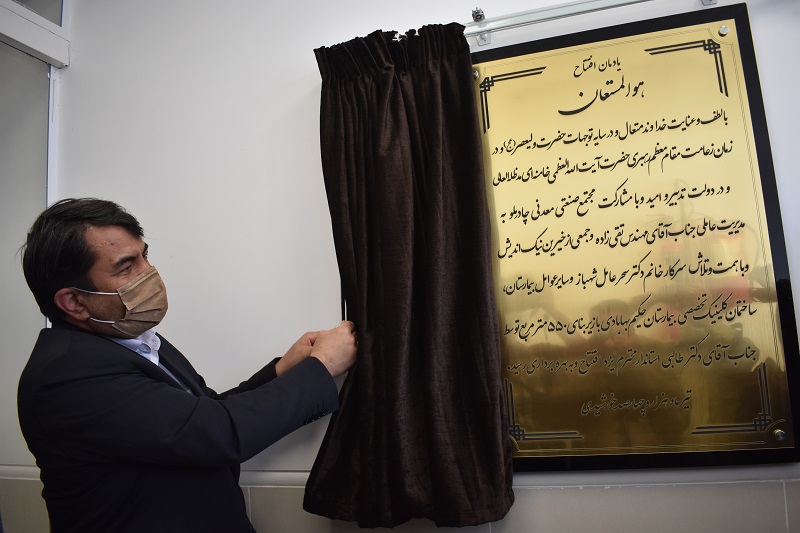 یادمان افتتاح
هوالمستعان
با لطف و عنایت خداوند متعال و در سایه توجهات حضرت ولیعصر (عج) و در
زمان زعامت مقام معظم رهبری حضرت آیت الله العظمی خامنه ای مدظله العالی
و در دولت تدبیر و امید و با مشارکت مجتمع صنعتی معدنی چادرملو به
مدیریت عاملی جناب آقای مهندس تقی زاده و جمعی از خیرین نیک اندیش
و با همت و تلاش سرکار خانم دکتر سحر عامل شهباز و سایر عوامل بیمارستان،
ساختمان کلینیک تخصصی بیمارستان حکیم بهابادی با زیربنای ۵۵۰ متر مربع توسط
جناب آقای دکتر طالبی استاندار محترم یزد، افتتاح و به بهره برداری رسید.
تیر ماه هزار و چهارصد خورشیدی